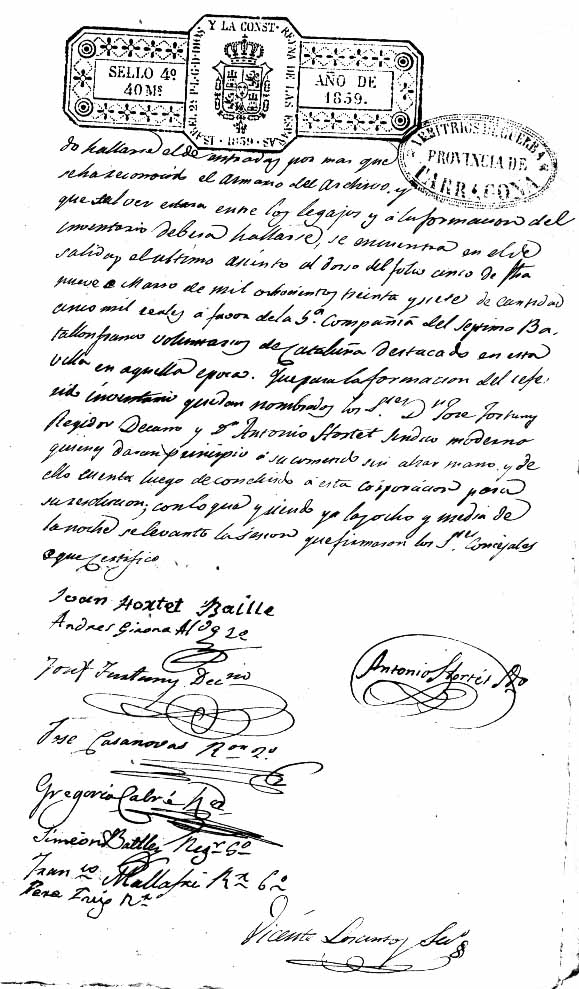 Y LA CONST. REYNA DE LAS ESPAÑAS
ISABEL 2ª P. L. G. D. DIOS
1839
SELLO 4º
40 Ms
AÑO DE
1839.
ARBITRIOS DE GUERRA
PROVINCIA DE
TARRAGONA
do hallarse el de entradas por mas que
se ha reconocido el Armario del Archivo, y
que tal ver estara entre los legajos y á la formacion del
inventario debera hallarse, se encuentra en el de
salidas el ultimo asiento al dorso del folio cinco de fha
nueve Marzo de mil ochocientos treinta y siete de cantidad
cinco mil reales á favor de la 5ª Compañia del Septimo Ba-
tallon franco voluntarios de Cataluña destacado en esta
villa en aquella epoca. Que para la formacion del refe-
rido inventario quedan nombrados los Sres Dn José Fortuny
Regidor Decano y Dn Antonio Hortet Sindico moderno
quienes daran principio á su comendo sin alzar mano, y de
ello cuenta luego de concluido á esta corporacion para
su resolucion; con lo que y siendo ya las ocho y media de
la noche se levanto la Sesion que firmaron los Sres Concejales
de que Certifico.
Joan Hortet Baille
Andres Girona Al
Josef Fortuny Decno
Antonio Hortet Sdo
Jose Casanovas Ror 2º
Gregorio Cabré Rer
Simeon Batlley Regr 5º
Franco Mallafré Rr 6º
Pere Rr
Vicente Srio